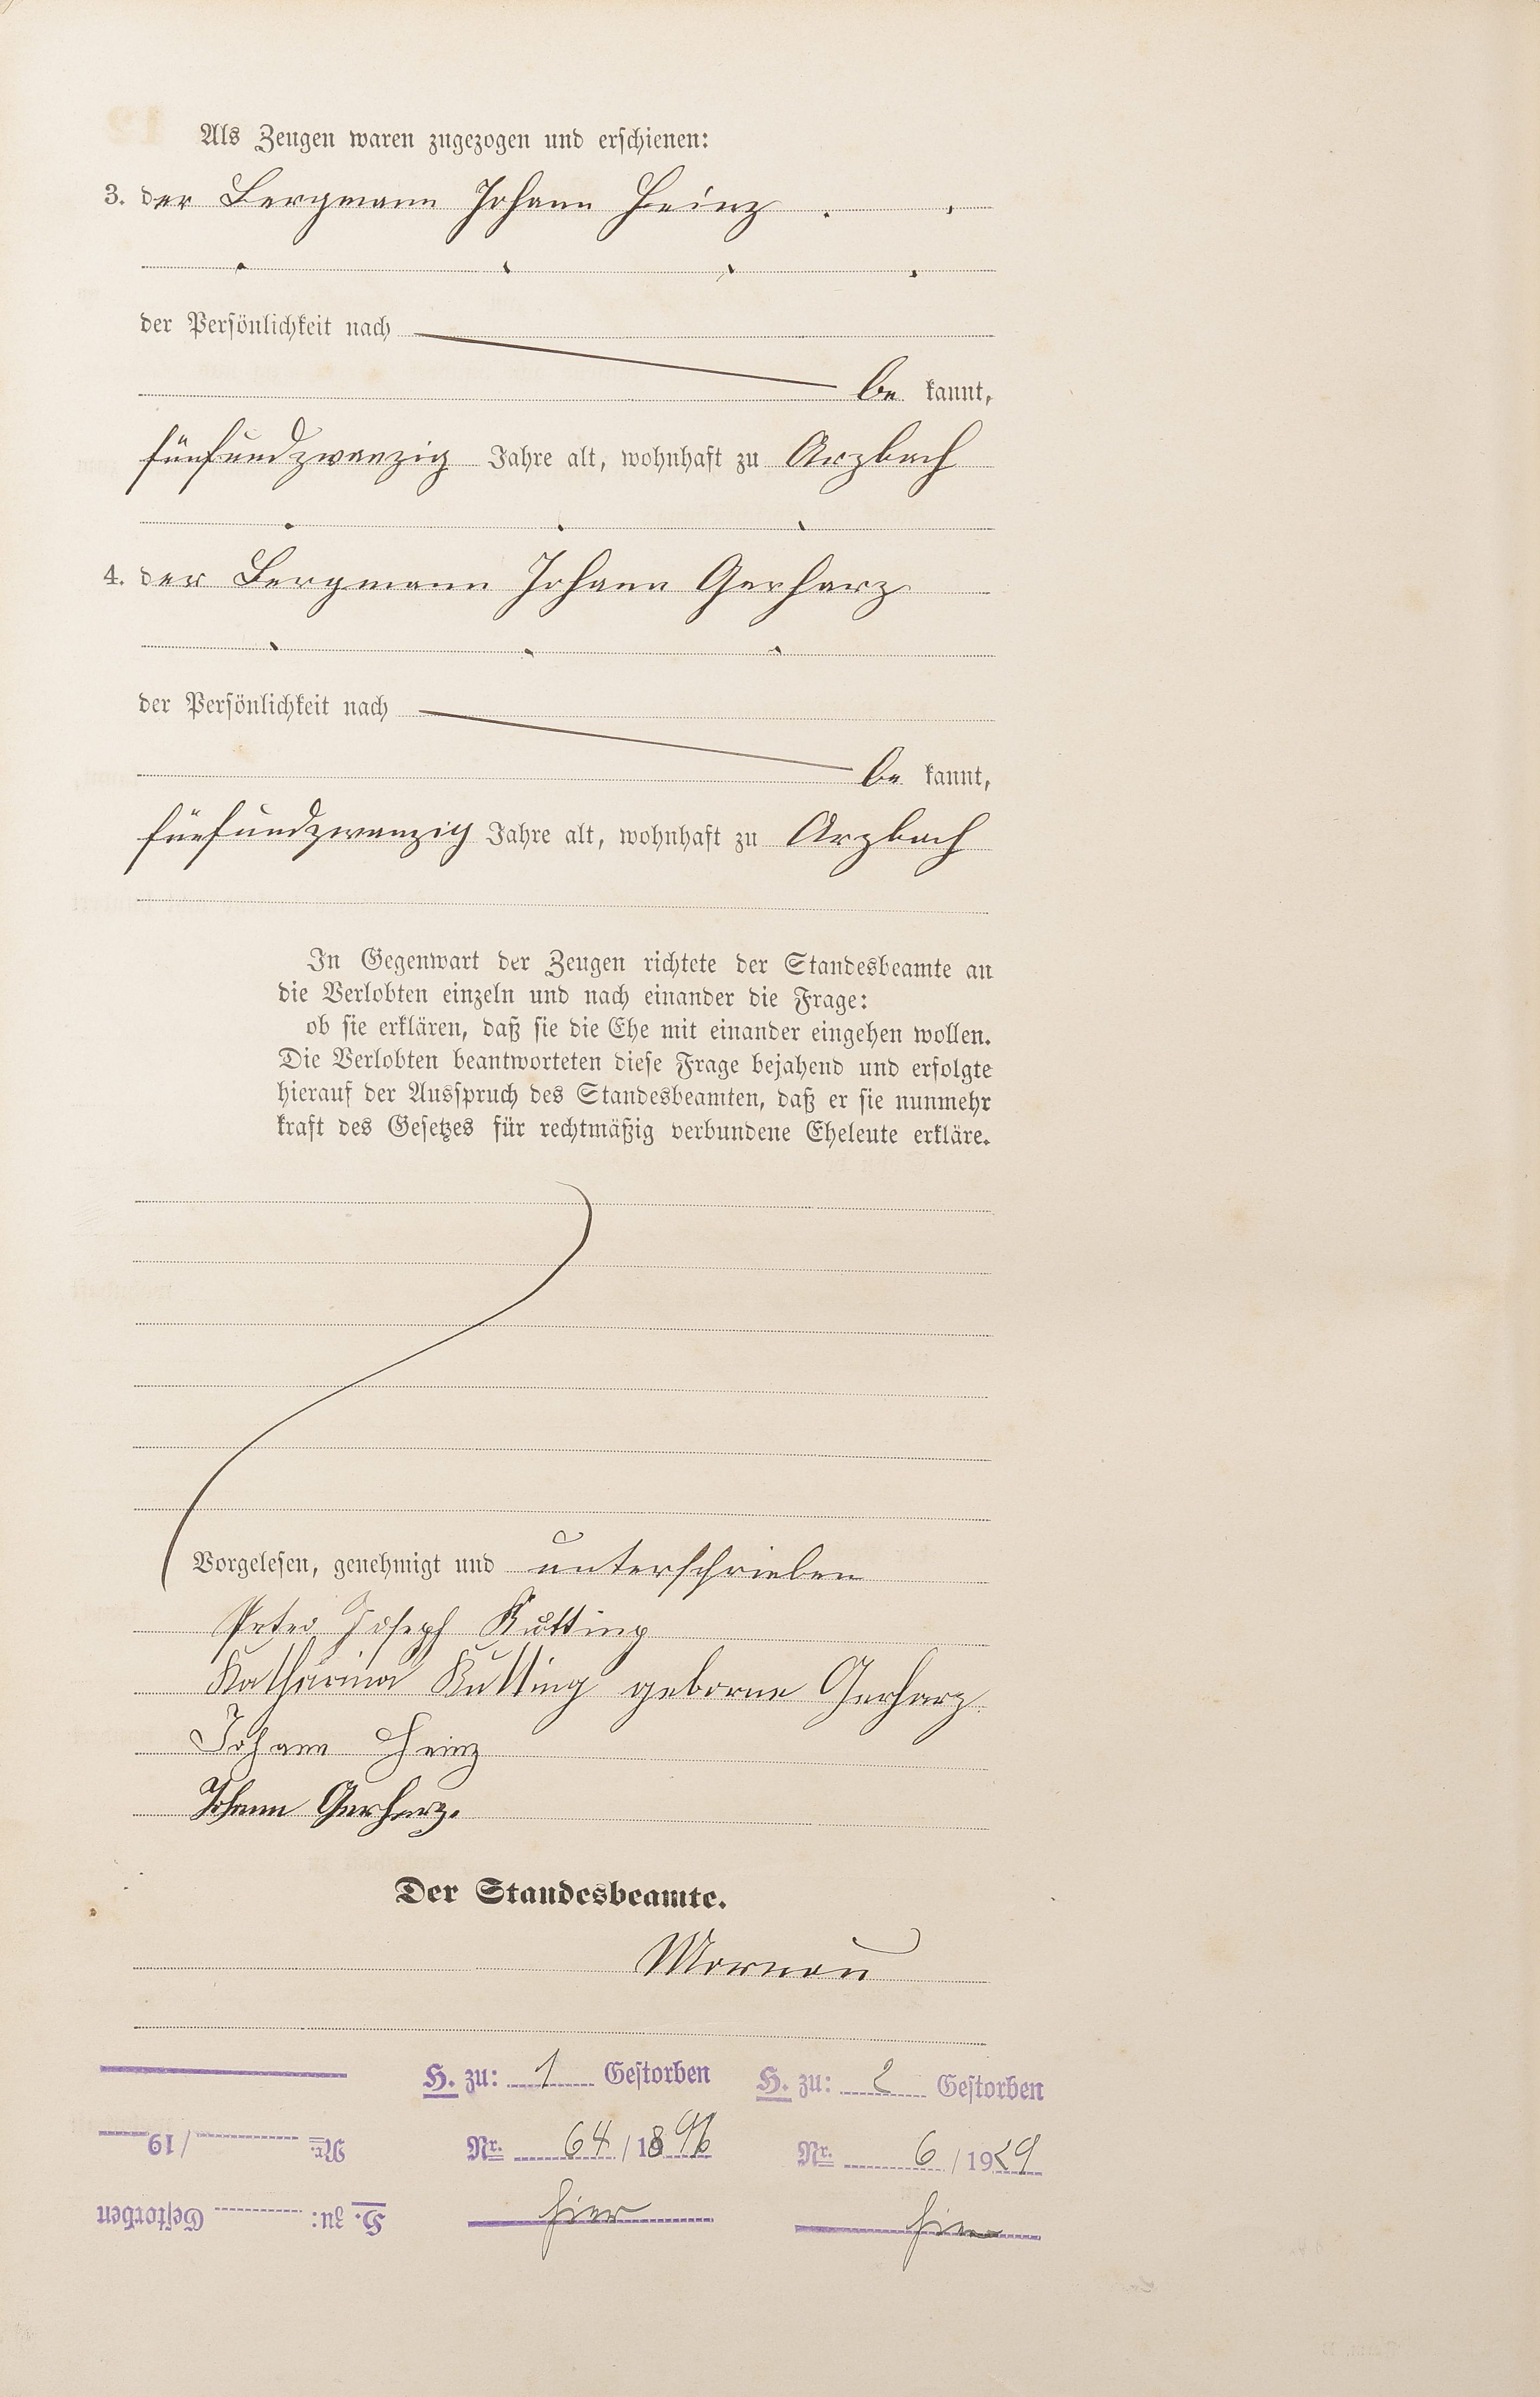 Als Zeugen waren zugezogen und erschienen:
3. der Bergmann Johann Heinz
der Persönlichkeit nach
be kannt,
fünfundzwanzig Jahre alt, wohnhaft zu Arzbach
4. der Bergmann Johann Gerharz
der Persönlichkeit nach
be kannt,
fünfundzwanzig Jahre alt, wohnhaft zu Arzbach
In Gegenwart der Zeugen richtete der Standesbeamte an
die Verlobten einzeln und nach einander die Frage:
ob sie erklären, daß sie die Ehe mit einander eingehen wollen.
Die Verlobten beantworteten diese Frage bejahend und erfolgte
hierauf der Ausspruch des Standesbeamten, daß er sie nunmehr
kraft des Gesetzes für rechtmäßig verbundene Eheleute erkläre.
Vorgelesen, genehmigt und unterschrieben
Peter Joseph Kutting
Katharina Kutting geborne Gerharz
Johann Heinz
Johann Gerharz.
Der Standesbeamte.
Mornau
H. zu: 1 Gestorben
Nr. 64/1896
hier
H. zu: 2 Gestorben
Nr. 6/1929
hier
H. zu: Gestorben
Nr. /19